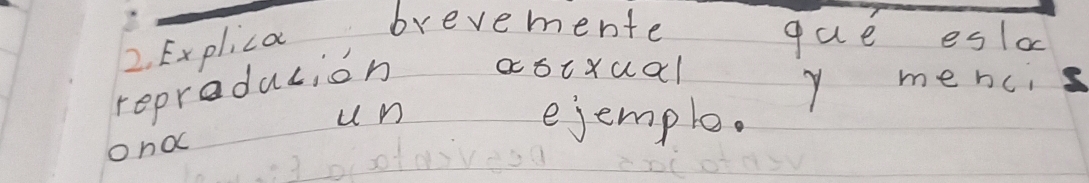 2. Explica brevemente qué es la
repradución asexual y menci
ona un ejemplo.